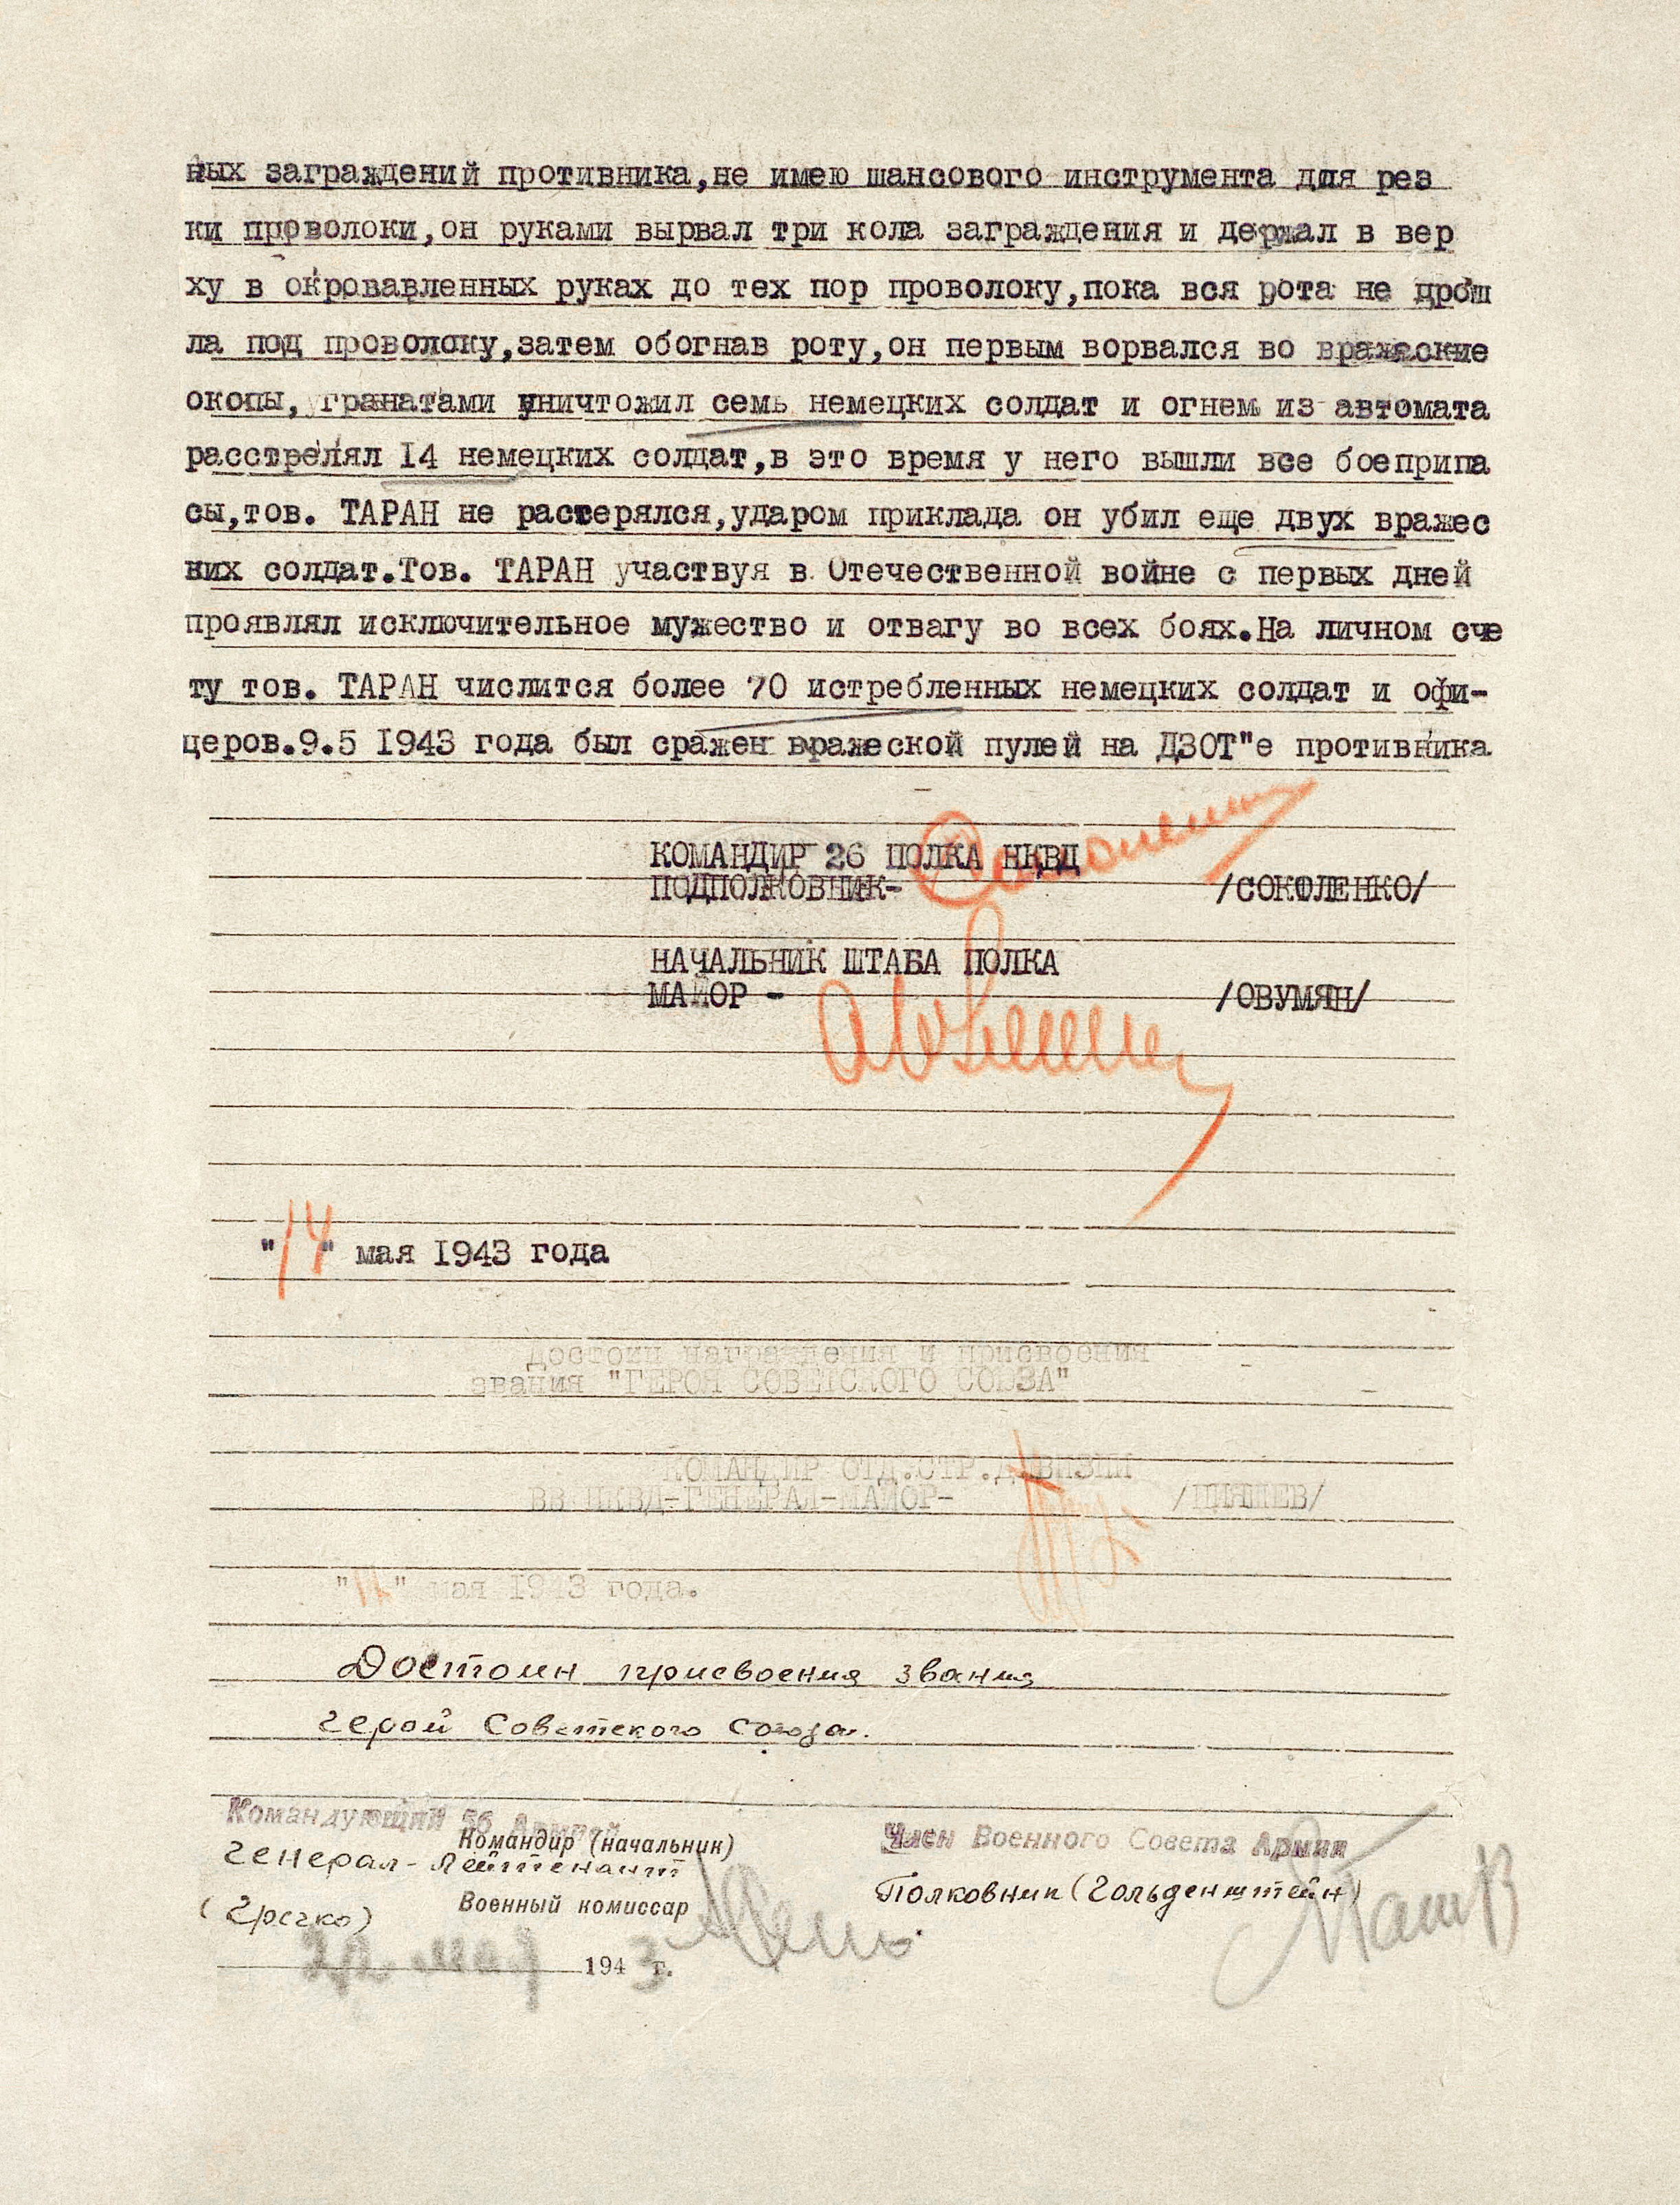 ных заграждений противника,не имею шансового инструмента для рез
ки проволоки,он руками вырвал три кола заграждения и держал в вер
ху в окровавленных руках до тех пор проволоку,пока вся рота не прош
ла под проволоку,затем обогнав роту,он первым ворвался во вражеские
окопы, гранатами уничтожил семь немецких солдат и огнем из автомата
расстрелял 14 немецких солдат,в это время у него вышли все боеприпа
сы,тов. ТАРАН не растерялся,ударом приклада он убил еще двух вражес
ких солдат.Тов. ТАРАН участвуя в Отечественной войне с первых дней
проявлял исключительное мужество и отвагу во всех боях.На личном сче
ту тов. ТАРАН числится более 70 истребленных немецких солдат и офи-
церов.9.5 1943 года был сражен вражеской пулей на ДЗОТ"е противника
КОМАНДИР 26 ПОЛКА НКВД
ПОДПОЛКОВНИК- /СОКОЛЕНКО/
НАЧАЛЬНИК ШТАБА ПОЛКА
МАЙОР - /ОВУМЯН/
"14" мая 1943 года
Достоин награждения и присвоения
звания "ГЕРОЯ СОВЕТСКОГО СОЮЗА"
КОМАНДИР ОТД.СТР.ДИВИЗИИ
ВВ НКВД-ГЕНЕРАЛ-МАЙОР- /ПИЯШЕВ/
" " мая 1943 года.
Достоин присвоения звания
герой Советского союза.
Командующий 56 Армией
Командир (начальник)
Член Военного Совета Армии
генерал-лейтенант
Полковник (Гольденштейн)
Военный комиссар
(Гречко)
22 мая 1943 г.